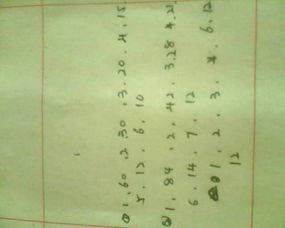 ① 1. 60. 2. 30. 3. 20. 4. 15.
5. 12. 6. 10
② 1. 84. 2. 42. 3. 28 4. 21
6. 14. 7. 12
③ 1. 2. 3. 4. 6. 12
12